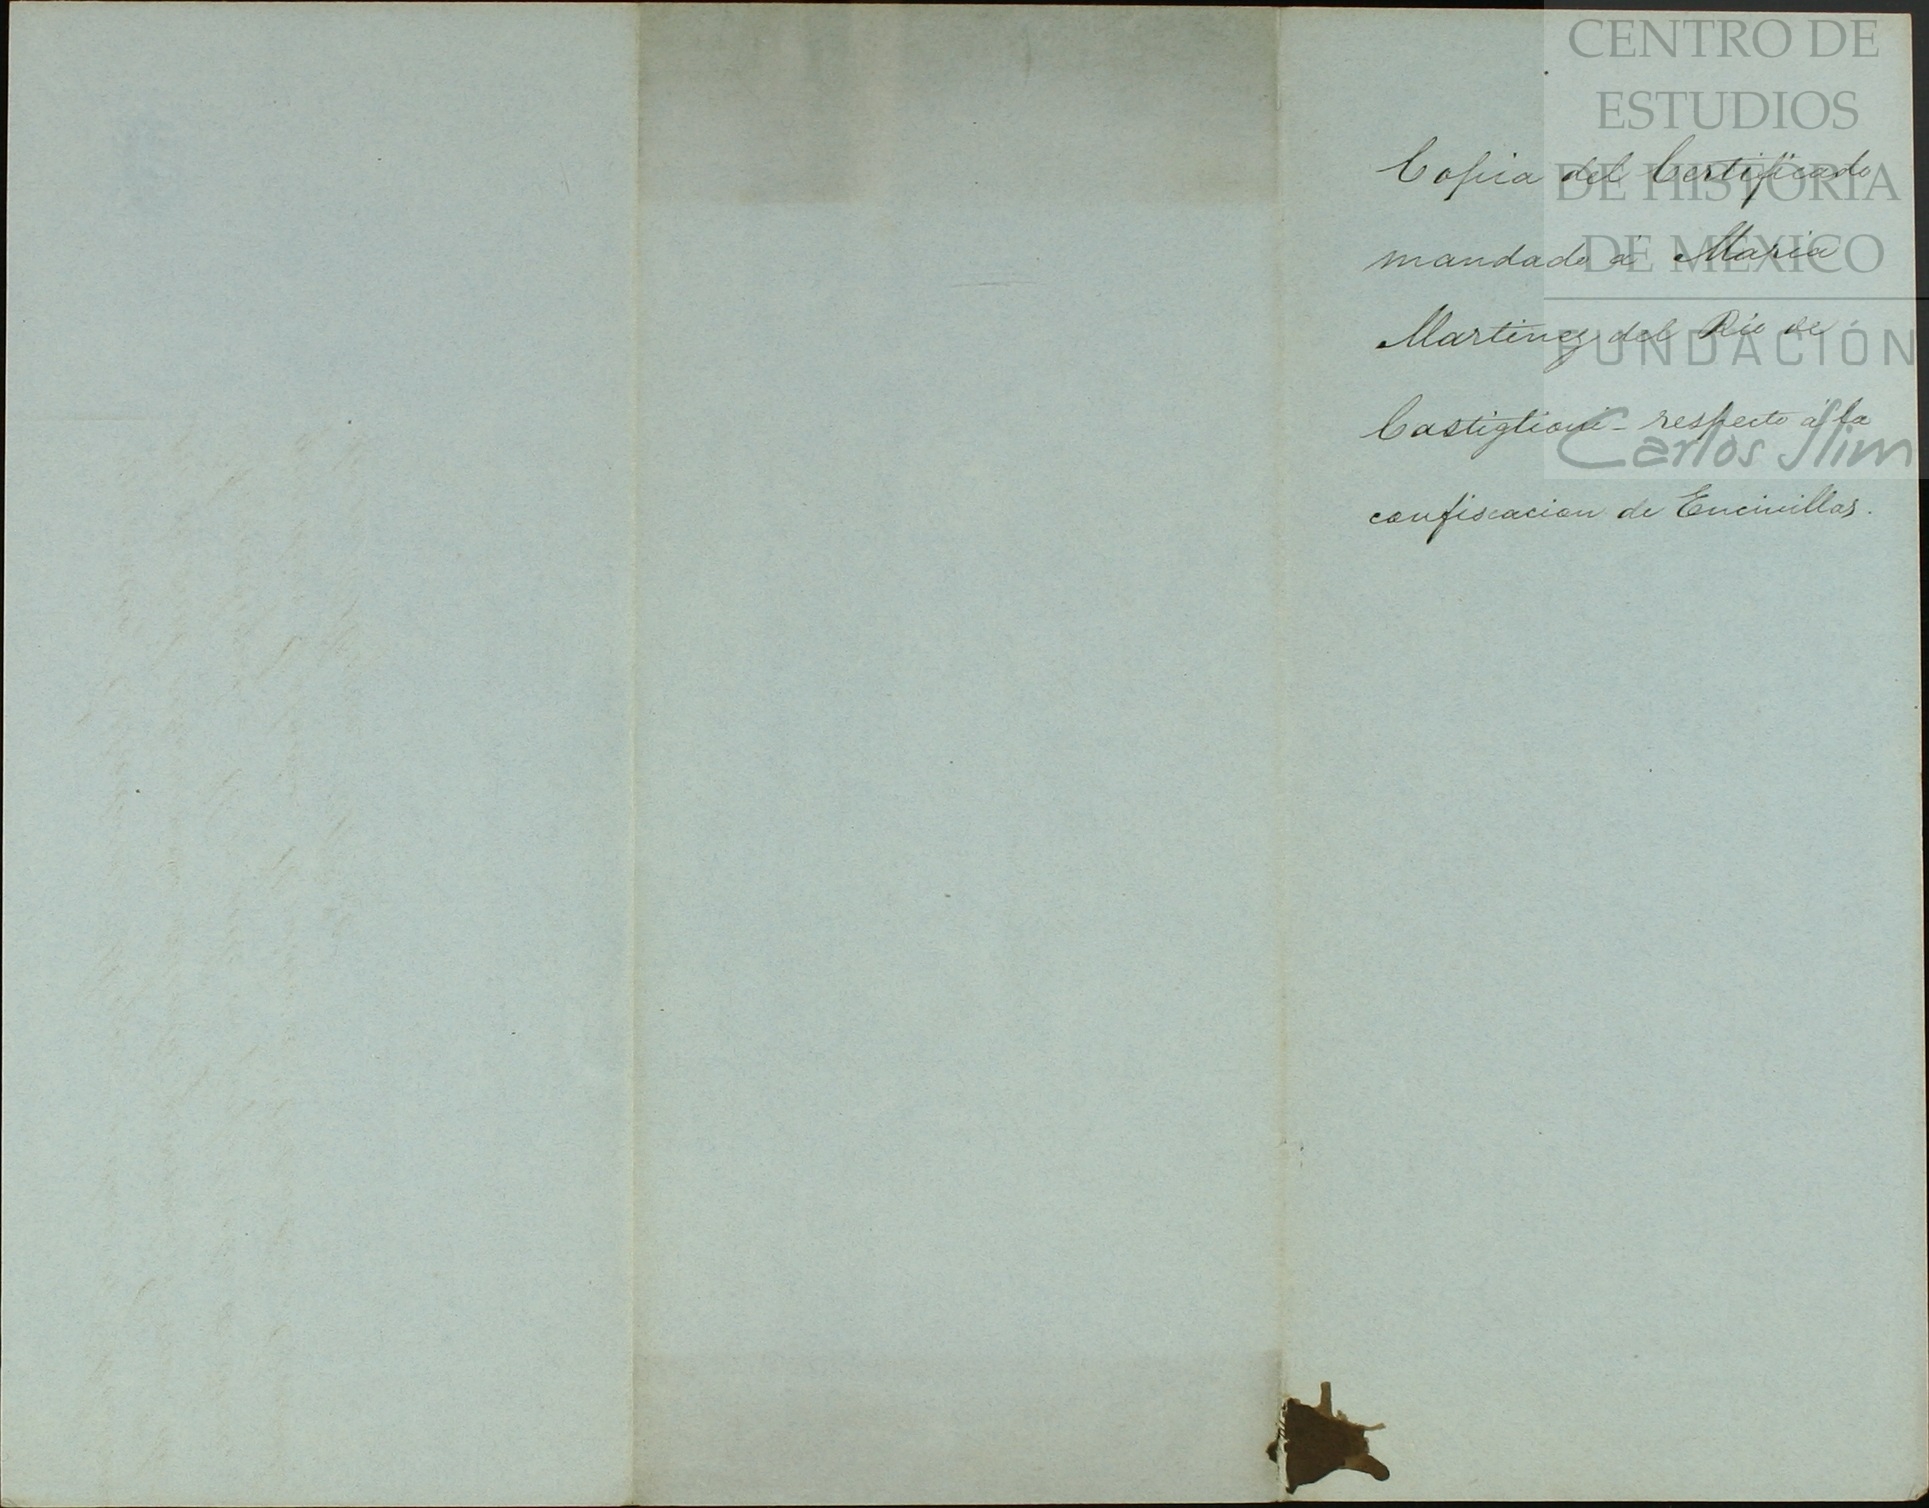 CENTRO DE
ESTUDIOS
DE HISTORIA
DE MÉXICO
FUNDACIÓN
Carlos Slim
Copia del Certificado
mandado á Maria
Martinez del Rio de
Castiglioni - respecto á la
confiscacion de Encinillas.